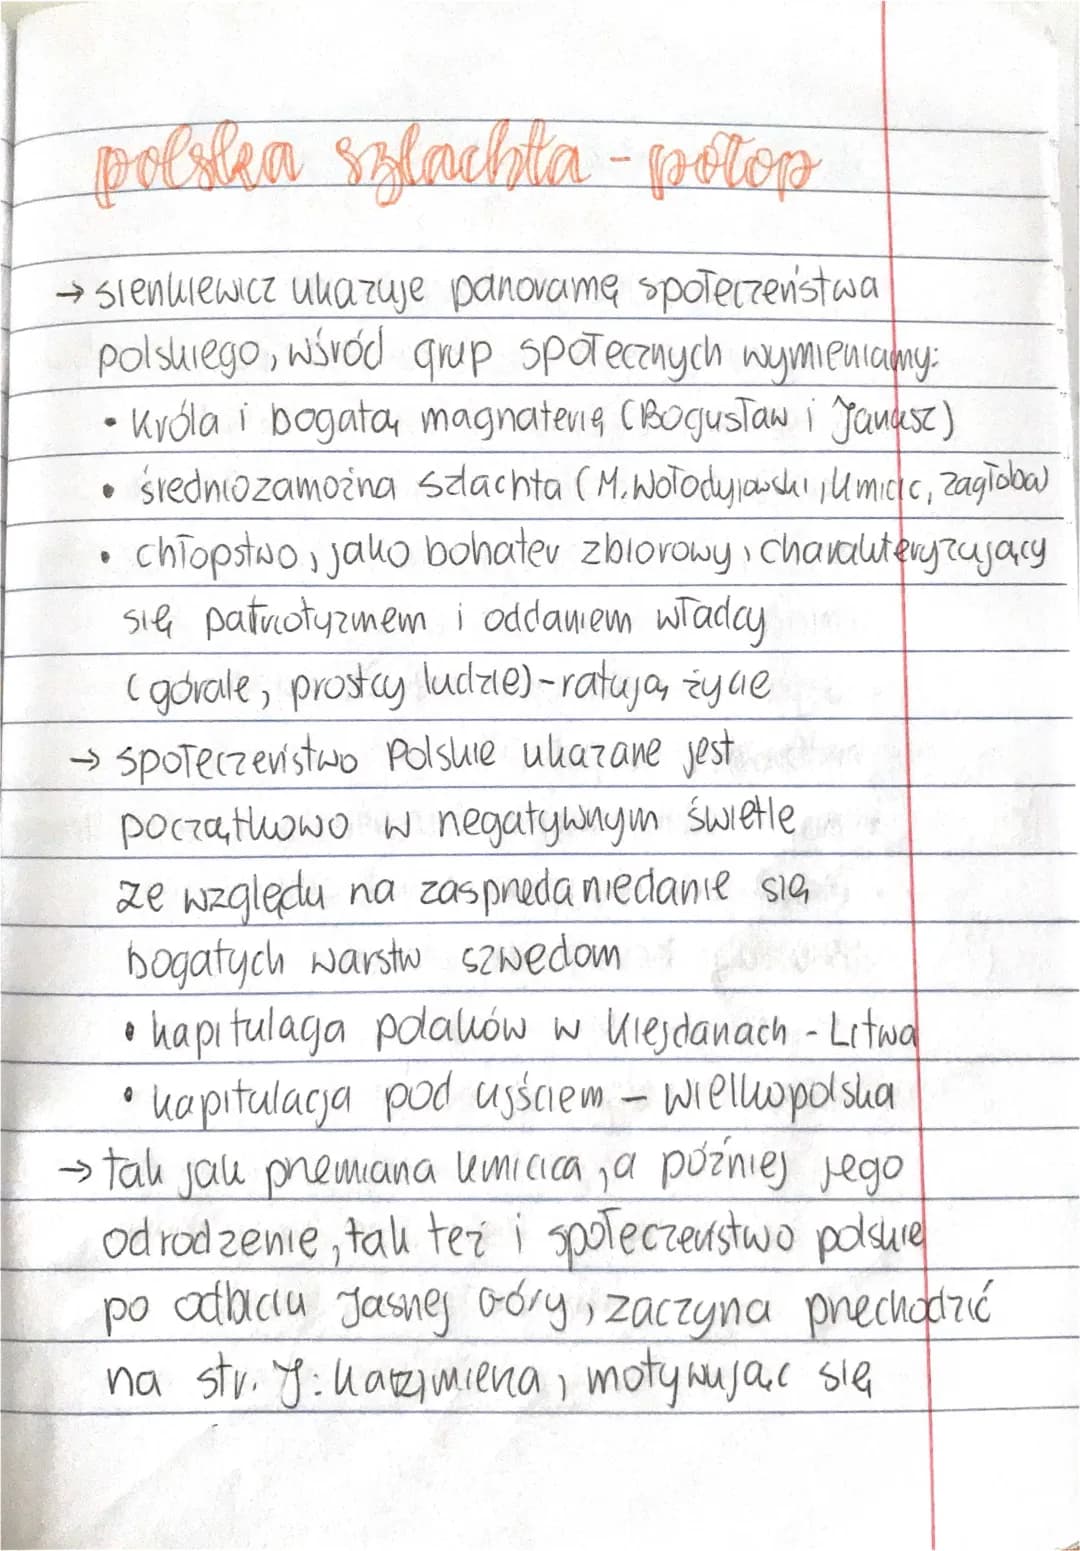 polska szlachta - potop
→ sienkiewicz ukazuje panoramę społeczeństwa
polskiego, wśród grup społecznych wymieniamy:
• króla i bogatą magnaterię (Bogusław i Janusz)
• średniozamożna szlachta (M. Wołodyjowski, Kmicic, Zagłoba)
• chłopstwo, jako bohater zbiorowy, charakteryzujący
się patriotyzmem i oddaniem władcy
(górale, prostcy ludzie) - ratują życie
→ społeczeństwo Polskie ukazane jest
początkowo w negatywnym świetle
ze względu na zasprzedaniedanie się
bogatych warstw szwedom
• kapitulacja polaków w Kiejdanach - Litwa
• kapitulacja pod ujściem - wielkopolska
→ tak jak przemiana kmicica, a później jego
odrodzenie, tak też i społeczeństwo polskie
po odbiciu Jasnej Góry, zaczyna przechodzić
na str. J. kazimierza, motywując się